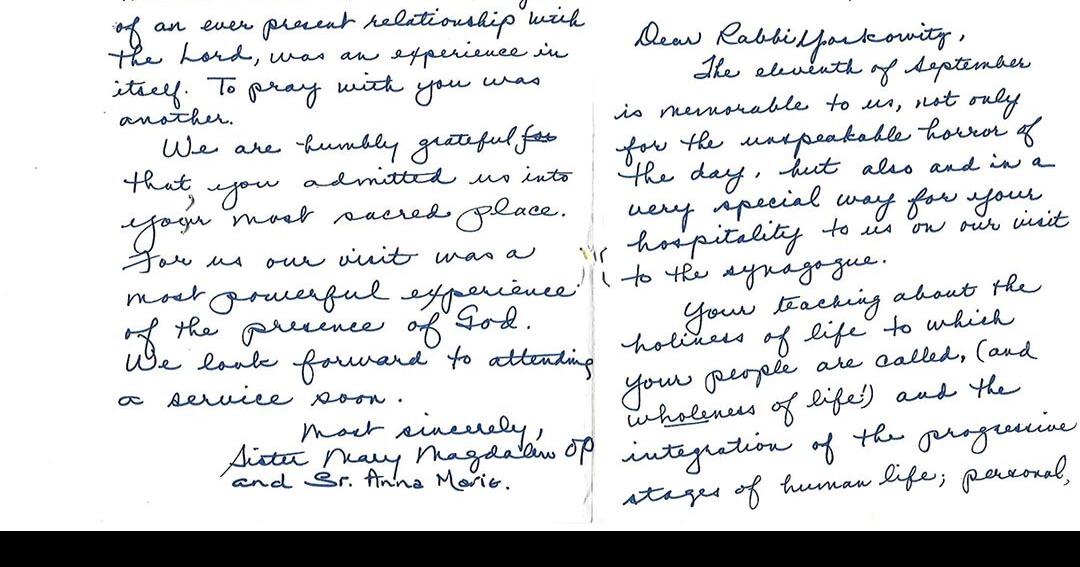 Dear Rabbi Yoskowitz,
The eleventh of September
is memorable to us, not only
for the unspeakable horror of
the day, but also and in a
very special way for your
hospitality to us on our visit
to the synagogue.
Your teaching about the
holiness of life to which
your people are called, (and
wholeness of life!) and the
integration of the progressive
stages of human life; personal,
of an ever present relationship with
the Lord, was an experience in
itself. To pray with you was
another.
We are humbly grateful for
that you admitted us into
your most sacred place.
For us our visit was a
most powerful experience
of the presence of God.
We look forward to attending
a service soon.
Most sincerely,
Sister Mary Magdalen OP
and Sr. Anna Marie.